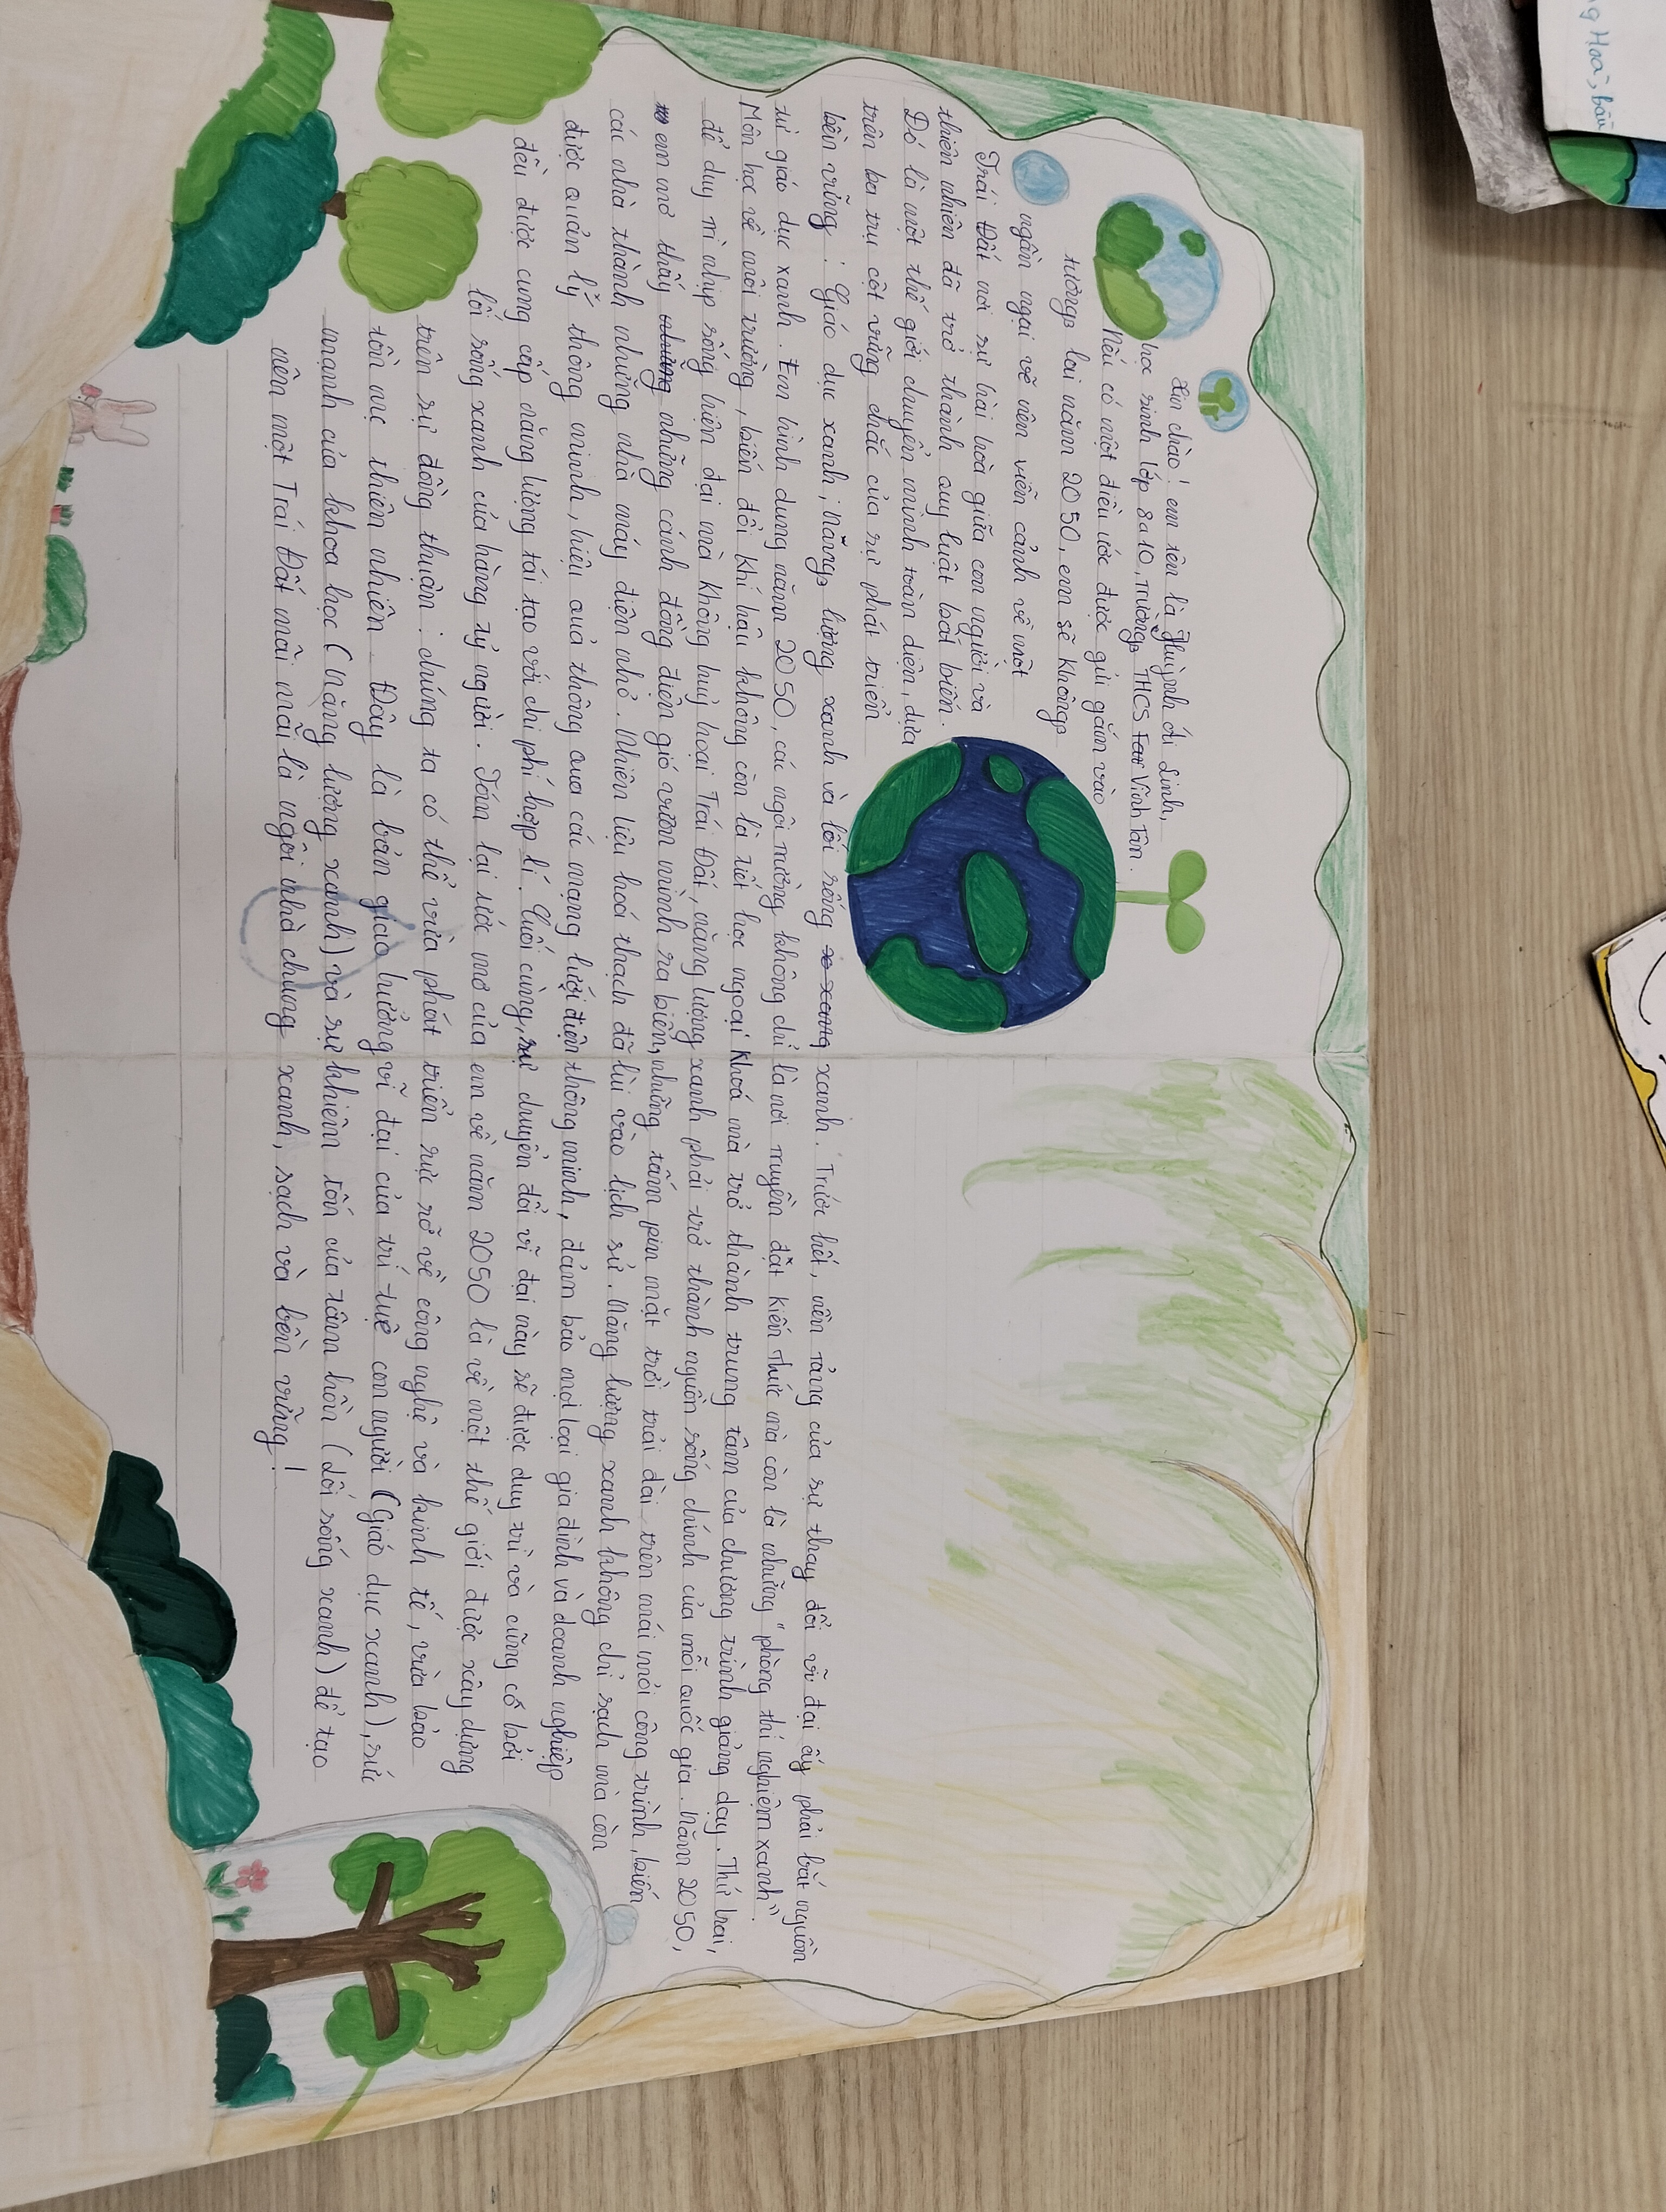 Xin chào! em tên là Huỳnh Ái Linh,
học sinh lớp 8a10, Trường THCS Vĩnh Tân.
Nếu có một điều ước được gửi gắm vào
tương lai năm 2050, em sẽ không
ngần ngại vẽ nên viễn cảnh về một
Trái Đất nơi sự hài hoà giữa con người và
thiên nhiên đã trở thành quy luật bất biến.
Đó là một thế giới chuyển mình toàn diện, dựa
trên ba trụ cột vững chắc của sự phát triển
bền vững : Giáo dục xanh, Năng lượng xanh và lối sống xanh. Trước hết, nền tảng của sự thay đổi vĩ đại ấy phải bắt nguồn
từ giáo dục xanh. Em hình dung năm 2050, các ngôi trường không chỉ là nơi truyền đặt kiến thức mà còn là những "phòng thí nghiệm xanh".
Môn học về môi trường, biến đổi khí hậu không còn là tiết học ngoại khoá mà trở thành trung tâm của chương trình giảng dạy. Thứ hai,
để duy trì nhịp sống hiện đại mà không huỷ hoại Trái Đất, năng lượng xanh phải trở thành nguồn sống chính của mỗi quốc gia. Năm 2050,
em mơ thấy những cánh đồng điện gió vươn mình ra biển, những tấm pin mặt trời trải dài trên mái mỏi công trình, biến
các nhà thành những nhà máy điện nhỏ. Nhiên liệu hoá thạch đã lùi vào lịch sử. Năng lượng xanh không chỉ sạch mà còn
được quản lý thông minh, hiệu quả thông qua các mạng lưới điện thông minh, đảm bảo mọi loại gia đình và doanh nghiệp
đều được cung cấp năng lượng tái tạo với chi phí hợp lí. Cuối cùng, sự chuyển đổi vĩ đại này sẽ được duy trì và cũng cố bởi
lối sống xanh của hàng tỷ người. Tóm lại ước mơ của em về năm 2050 là về một thế giới được xây dựng
trên sự đồng thuận : chúng ta có thể vừa phát triển rực rỡ về công nghệ và kinh tế, vừa bảo
tồn mẹ thiên nhiên. Đây là bản giao hưởng vĩ đại của trí tuệ con người (Giáo dục xanh), sức
mạnh của khoa học (Năng lượng xanh) và sự khiêm tốn của tâm hồn (Lối sống xanh) để tạo
nên một Trái Đất mãi mãi là ngôi nhà chung xanh, sạch và bền vững!